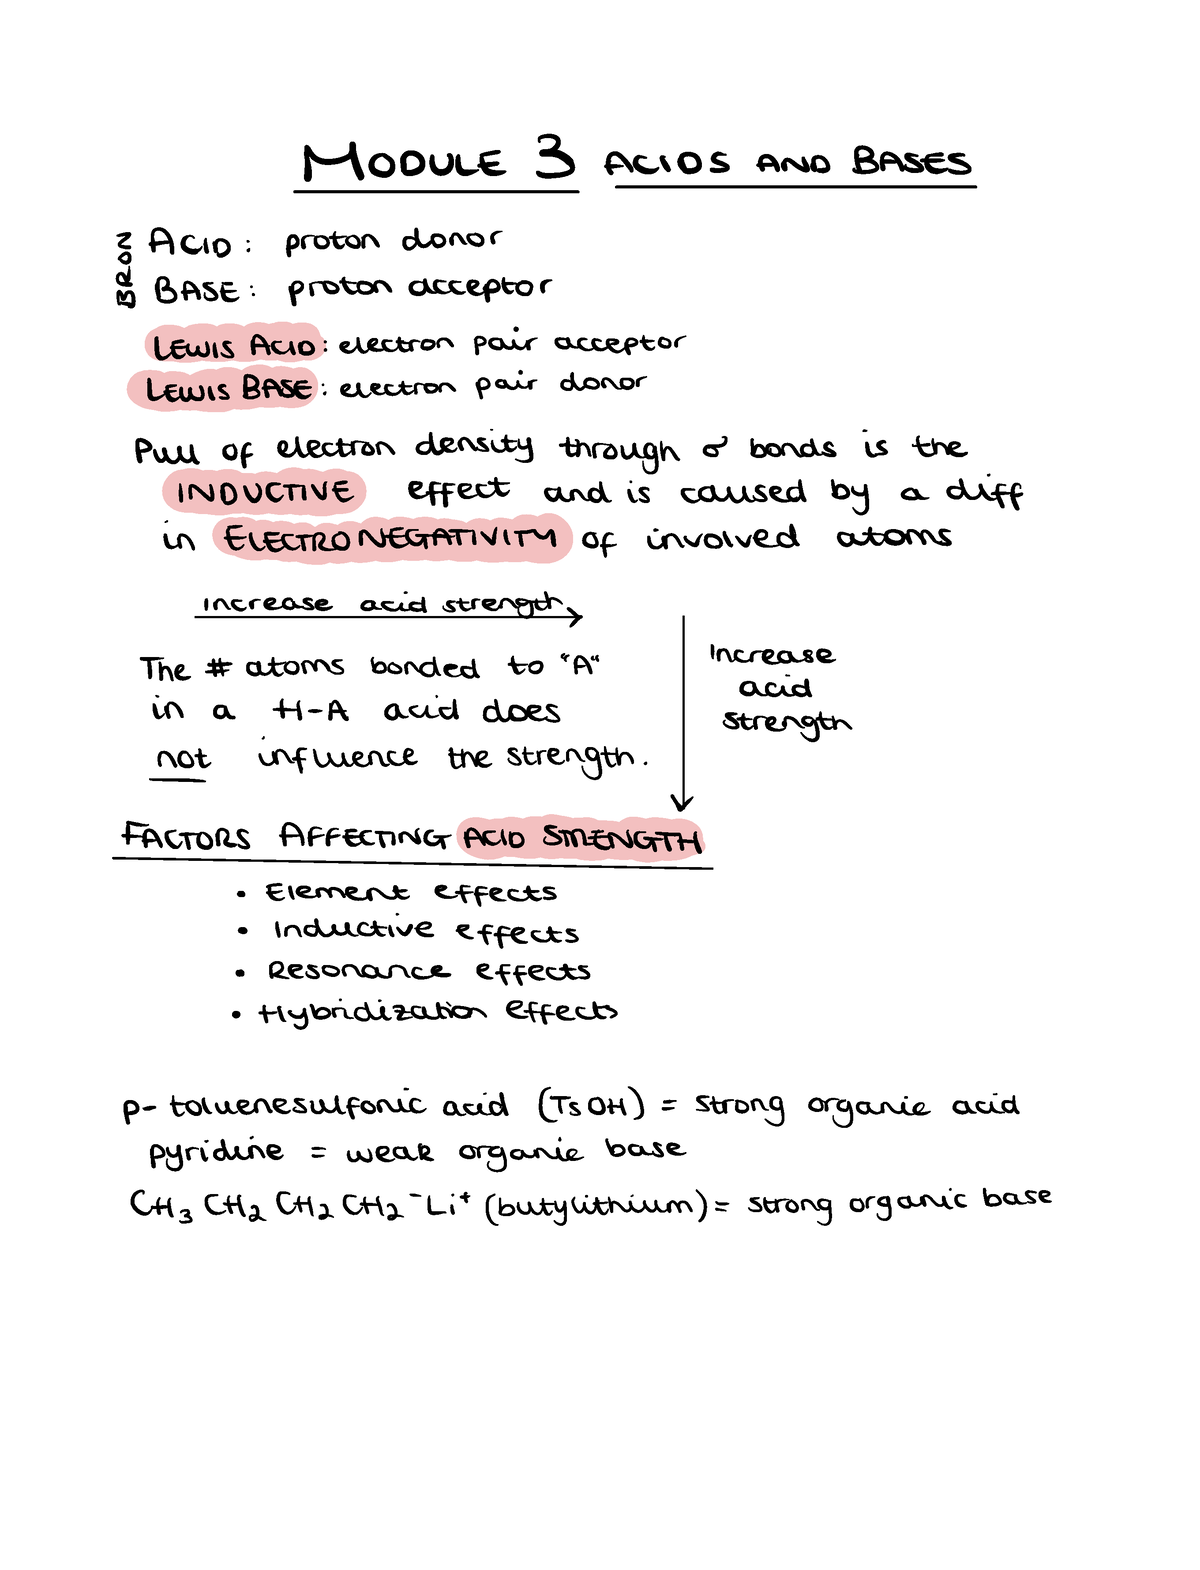 MODULE 3 ACIDS AND BASES
BRON
ACID: proton donor
BASE: proton acceptor
LEWIS ACID: electron pair acceptor
LEWIS BASE: electron pair donor
Pull of electron density through σ bonds is the
INDUCTIVE effect and is caused by a diff
in ELECTRONEGATIVITY of involved atoms
increase acid strength
The # atoms bonded to "A"
in a H-A acid does
not influence the strength.
Increase
acid
strength
FACTORS AFFECTING ACID STRENGTH
• Element effects
• Inductive effects
• Resonance effects
• Hybridization effects
p-toluenesulfonic acid (TsOH) = strong organic acid
pyridine = weak organic base
CH₃CH₂CH₂CH₂⁻Li⁺ (butylithium) = strong organic base